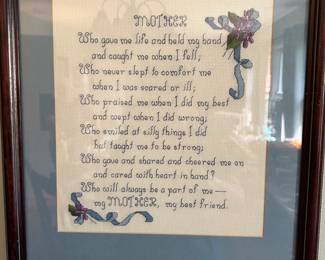 MOTHER
Who gave me life and held my hand,
and caught me when I fell;
Who never slept to comfort me
when I was scared or ill;
Who praised me when I did my best
and wept when I did wrong;
Who smiled at silly things I did
but taught me to be strong;
Who gave and shared and cheered me on
and cared with heart in hand?
Who will always be a part of me—
my MOTHER, my best friend.